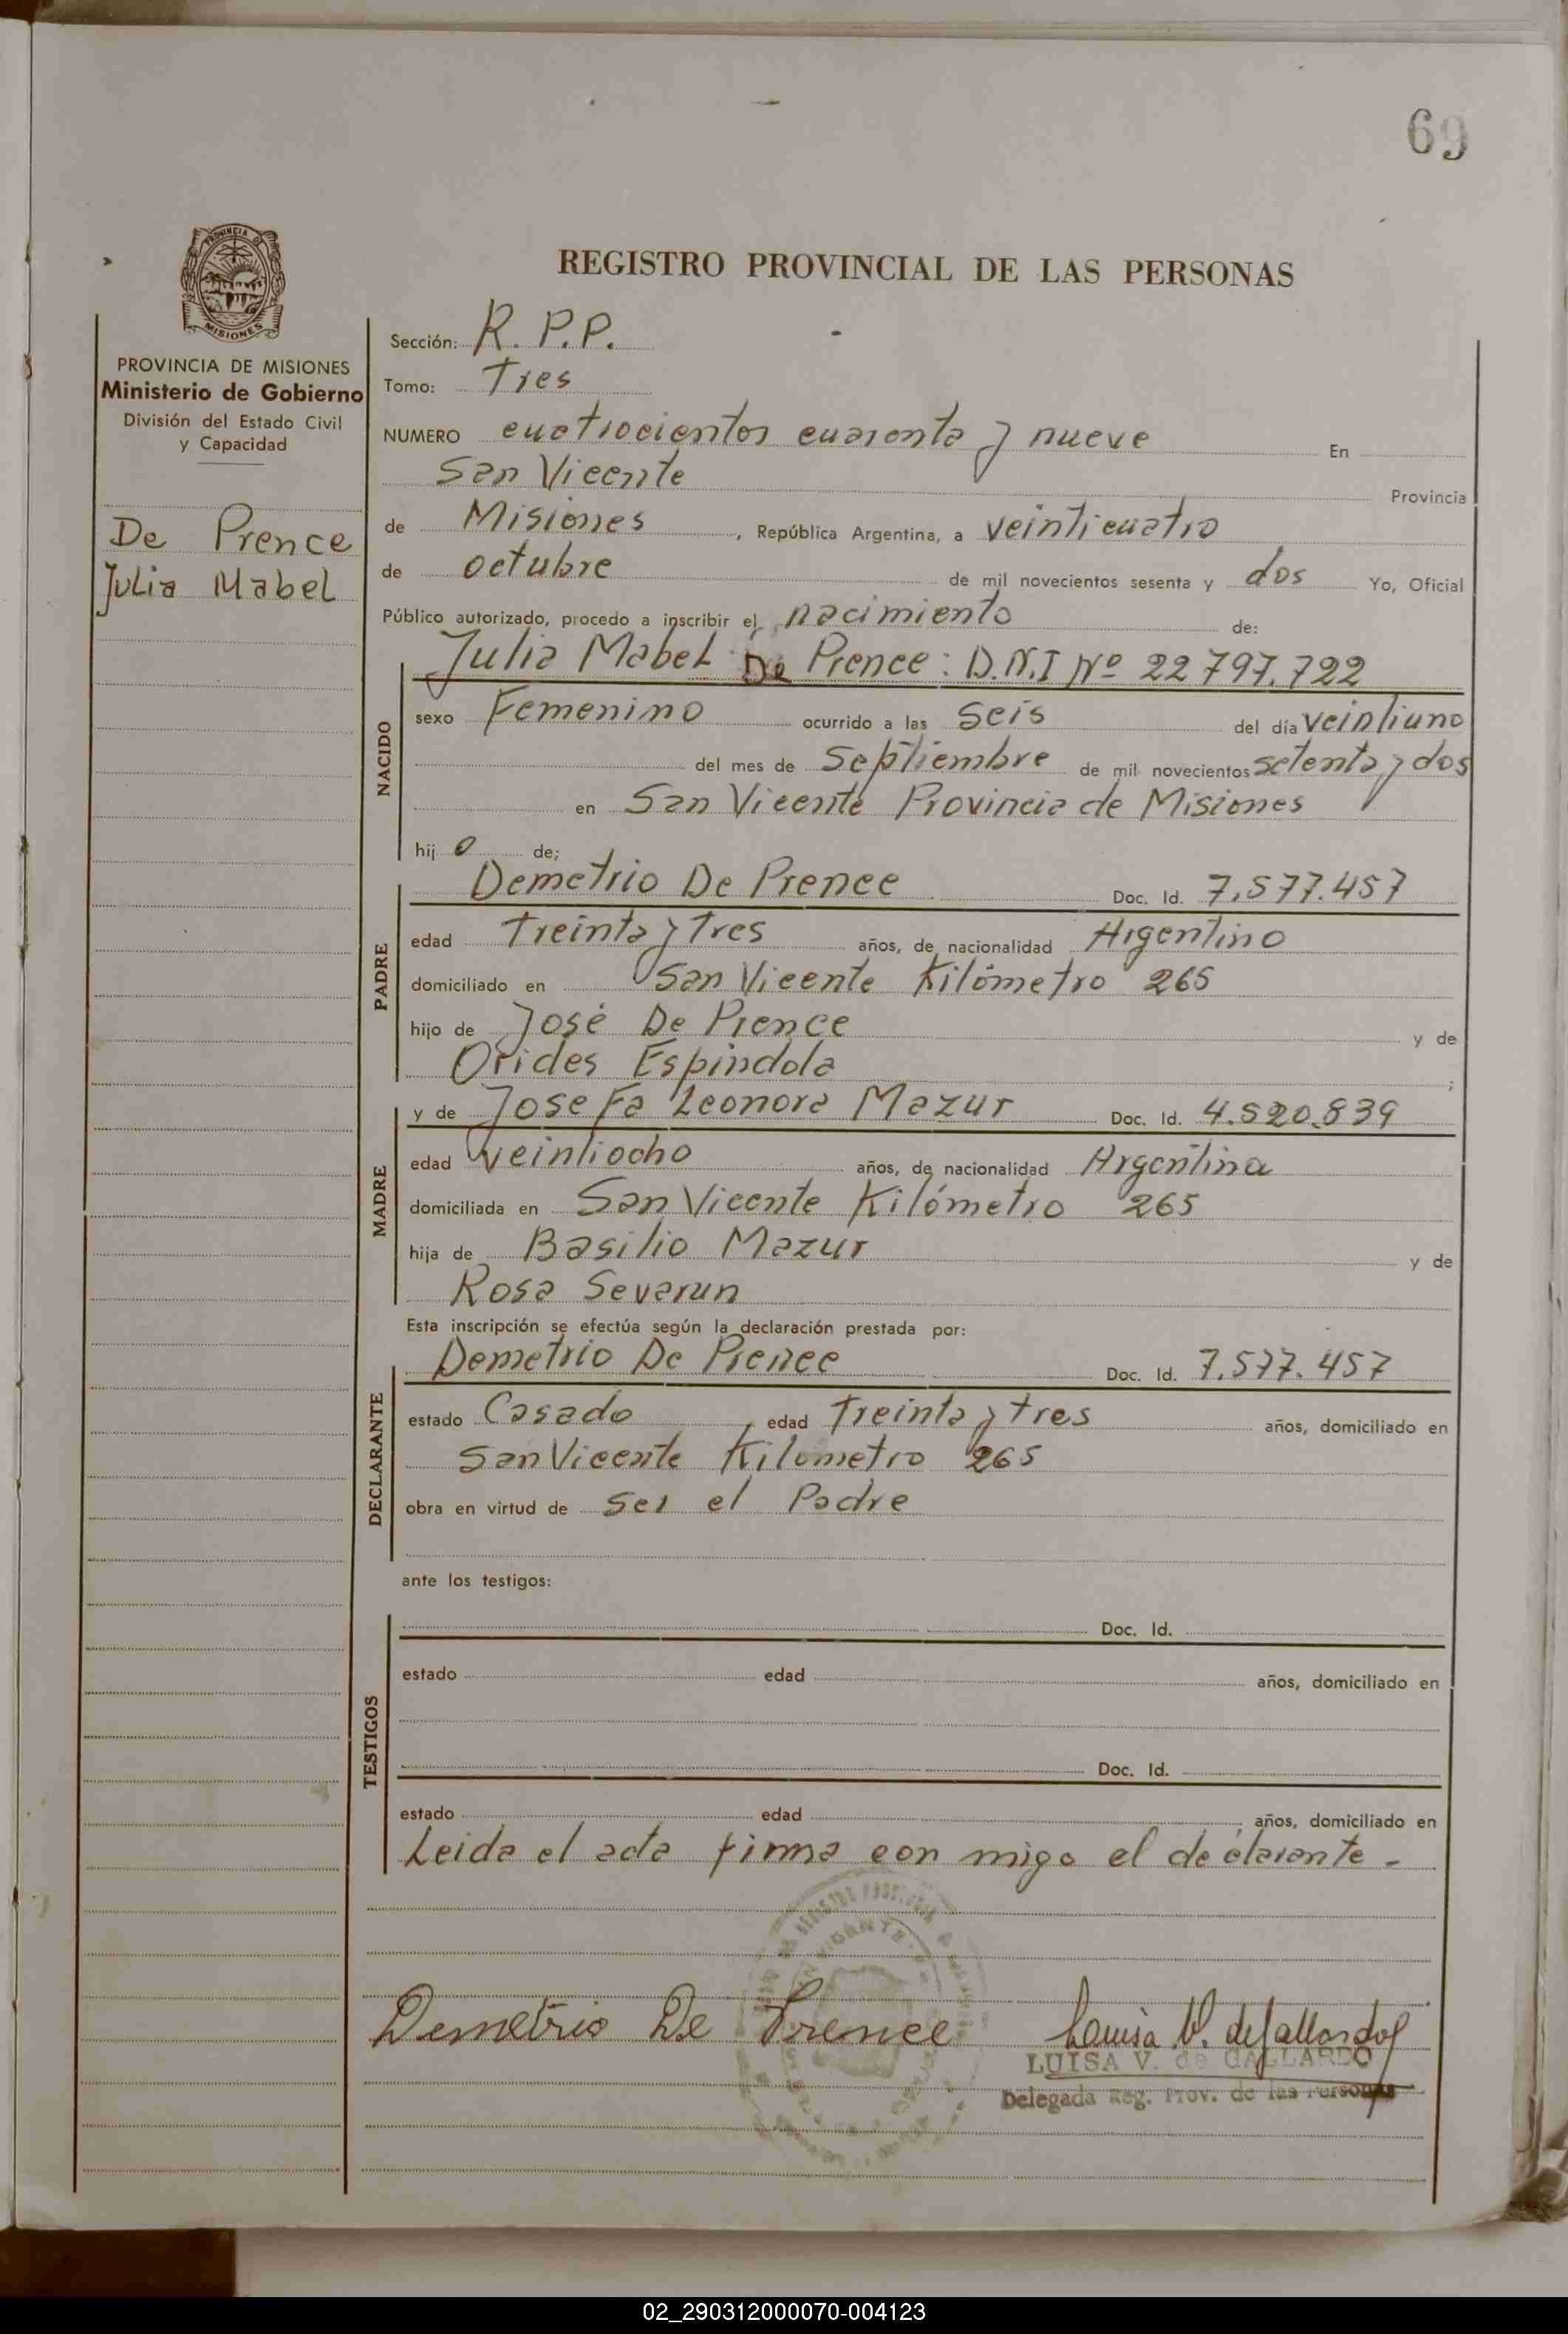 69
PROVINCIA DE
MISIONES
REGISTRO PROVINCIAL DE LAS PERSONAS
PROVINCIA DE MISIONES
Ministerio de Gobierno
División del Estado Civil
y Capacidad
De Prence
Julia Mabel
Sección: R. P.P.
Tomo: Tres
NUMERO cuatrocientos cuarenta y nueve En
San Vicente Provincia
de Misiones, República Argentina, a veinticuatro
de octubre de mil novecientos sesenta y dos Yo, Oficial
Público autorizado, procedo a inscribir el nacimiento de:
Julia Mabel De Prence: D.N.I Nº 22 797.722
NACIDO
sexo Femenino ocurrido a las seis del día veintiuno
del mes de Septiembre de mil novecientos setenta y dos
en San Vicente Provincia de Misiones
hij o de;
Demetrio De Prence Doc. Id. 7.577.457
PADRE
edad Treinta y Tres años, de nacionalidad Argentino
domiciliado en San Vicente Kilómetro 265
hijo de José De Prence y de
Orides Espindola ;
y de Josefa Leonora Mazur Doc. Id. 4.520.839
MADRE
edad veintiocho años, de nacionalidad Argentina
domiciliada en San Vicente Kilómetro 265
hija de Basilio Mazur y de
Rosa Severun
Esta inscripción se efectúa según la declaración prestada por:
Demetrio De Prence Doc. Id. 7.577.457
DECLARANTE
estado Casado, edad Treinta y tres años, domiciliado en
San Vicente Kilometro 265
obra en virtud de ser el Padre
ante los testigos:
TESTIGOS
Doc. Id.
estado edad años, domiciliado en
Doc. Id.
estado edad, años, domiciliado en
Leida el acta firma con migo el declarante -
Demetrio De Prence Louisa V. de Gallardo
LUISA V. de GALLARDO
Delegada Reg. Prov. de las Personas
02_290312000070-004123